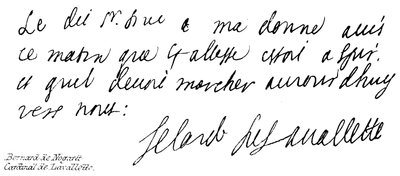 Le dit Sr. Duc e ma donne auis
ce matin que S allesse estoit a
et quil deuoit marcher auiourdhuy
vers nous:
le Card de Lauallette
Bernard de Nogaret
Cardinal de Lavallette.